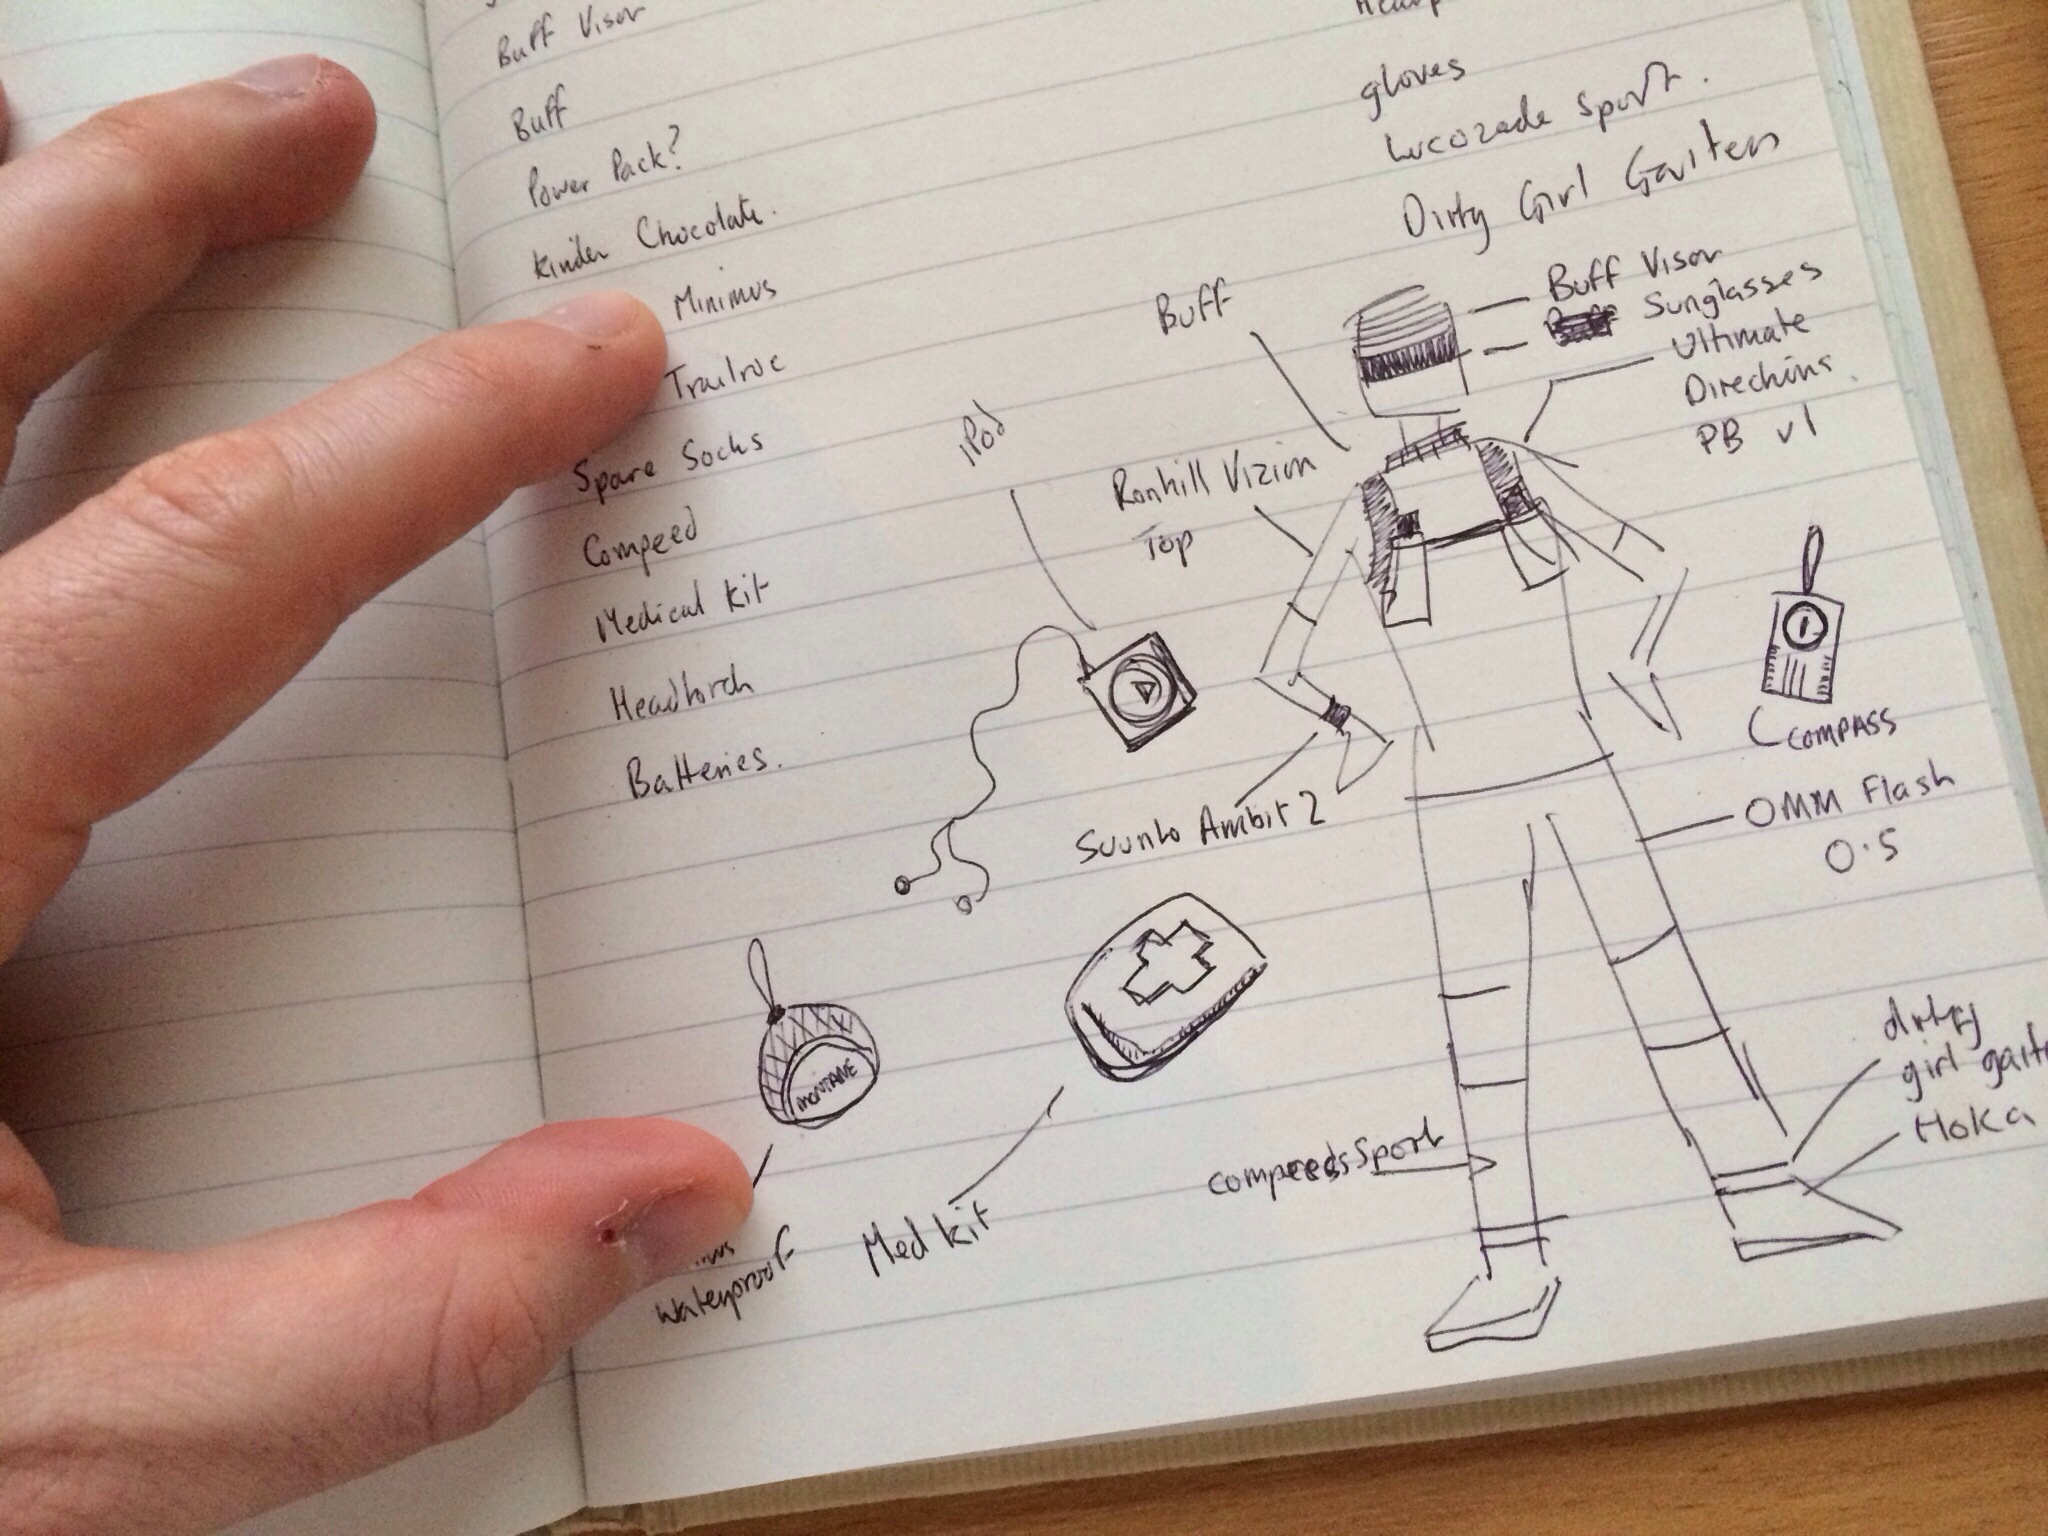 Buff Visor
Buff
Power Pack?
Kinder Chocolate.
Minimus
Trailroc
Spare Socks
Compeed
Medical kit
Headtorch
Batteries.
gloves
Lucozade Sport.
Dirty Girl Gaiters
Buff
Buff Visor
Sunglasses
Ultimate
Directions.
PB v1
iPod
Ronhill Vizion
Top
Suunto Ambit 2
COMPASS
OMM Flash
0.5
MONTANE
Waterproof
Med kit
Sport
dirty
girl
Hoka